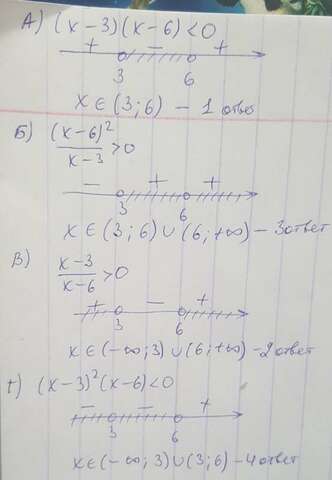 А) (x-3)(x-6)<0
+ - +
3 6
x∈(3;6) - 1 ответ
Б) (x-6)²/x-3 >0
- + +
3 6
x∈(3;6)∪(6;+∞) - 3 ответ
В) x-3/x-6 >0
+ - +
3 6
x∈(-∞;3)∪(6;+∞) - 2 ответ
Г) (x-3)²(x-6)<0
- - +
3 6
x∈(-∞;3)∪(3;6) - 4 ответ